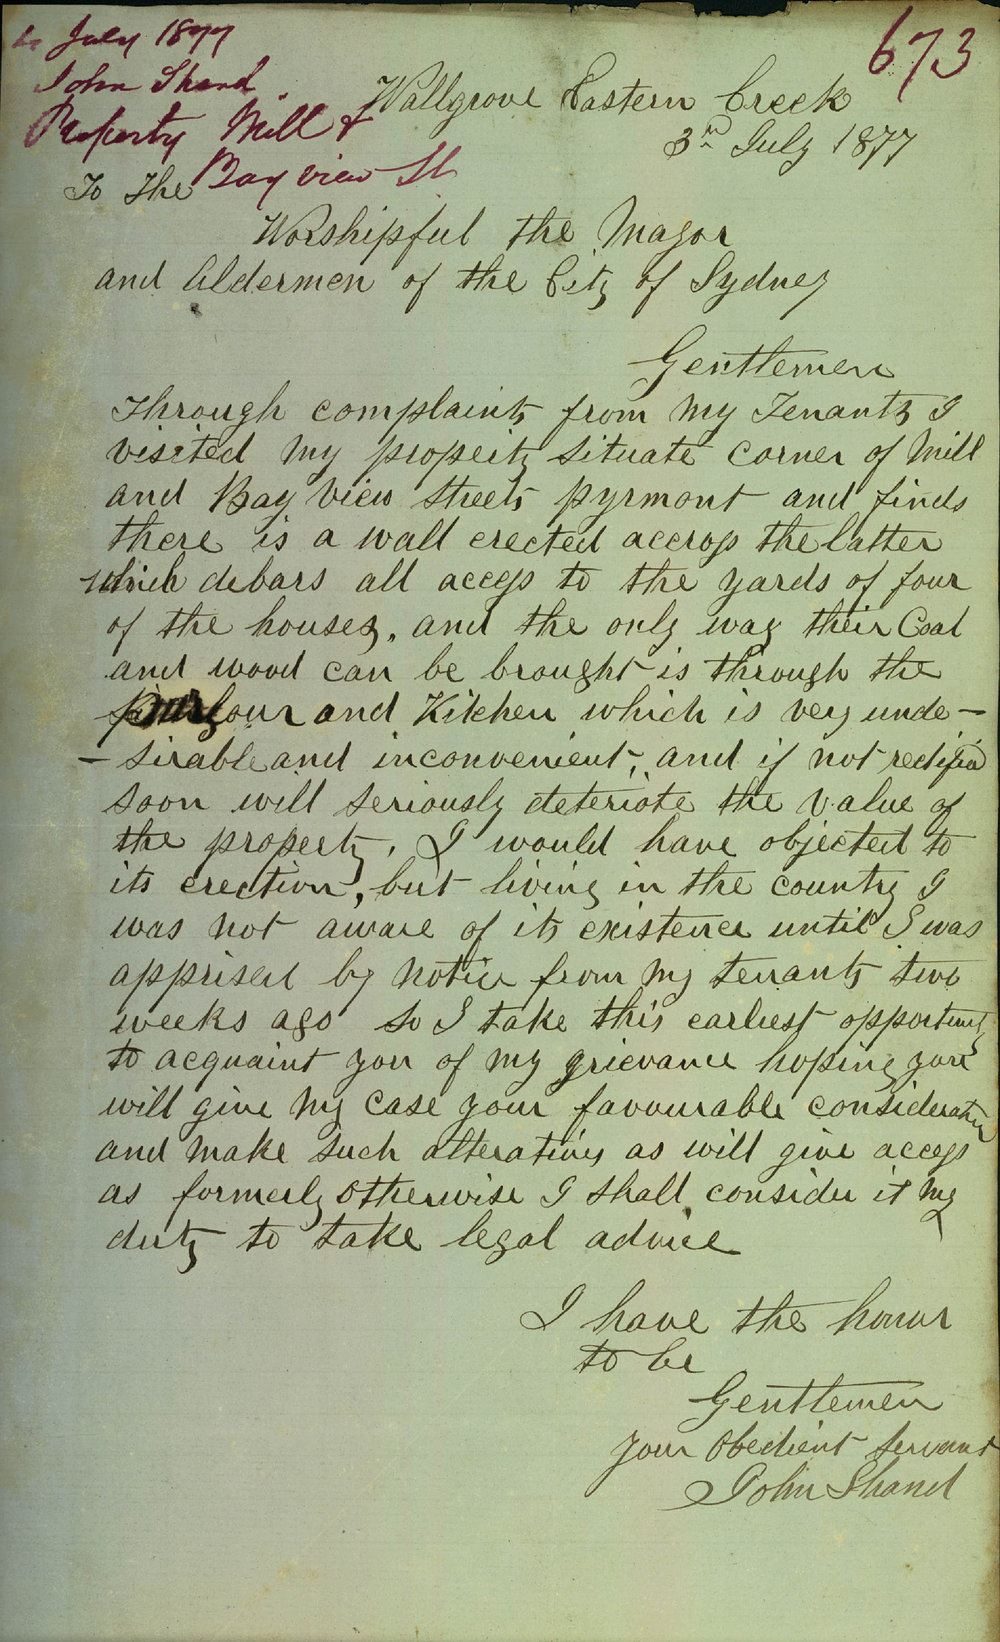 July 1877
John Shand
Property Mill &
Bay view St
673
Wallgrove Eastern Creek
3rd July 1877
To the
Worshipful the Mayor
and Aldermen of the City of Sydney
Gentlemen
Through complaints from my Tenants I
visited my property situate corner of Mill
and Bay View streets pyrmont and finds
there is a wall erected accross the latter
which debars all access to the yards of four
of the houses, and the only way their Coal
and wood can be brought is through the
parlour and Kitchen which is very unde-
-sirable and inconvenient, and if not rectified
soon will seriously deteriote the value of
the property, I would have objected to
its erection, but living in the country I
was not aware of its existence until I was
apprised by notice from my tenants two
weeks ago so I take this earliest opportunity
to acquaint you of my grievance hoping you
will give my case your favourable consideration
and make such alterations as will give access
as formerly otherwise I shall consider it my
duty to take legal advice
I have the honor
to be
Gentlemen
your Obedient Servant
John Shand